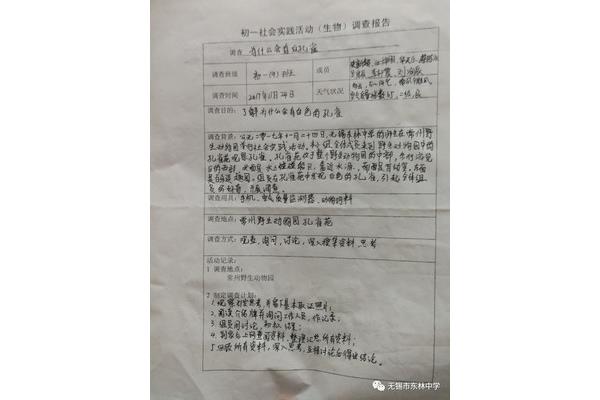 初一社会实践活动（生物）调查报告
调查 为什么会有白孔雀
调查班级 初一(4)班 成员
调查时间 2017年11月24日 天气状况
调查目的：了解为什么会有白色的孔雀
调查背景：公元二〇一七年十一月二十四日，无锡东林中学的师生在常州野
生动物园举行社会实践活动，本组全体成员来到野生动物园中的
孔雀苑观赏孔雀。孔雀苑位于整个野生动物园的中部
在孔雀苑中发现白色的孔雀，引起了本组
调查用具：手机、空气质量监测器、动物饲料
调查地点：常州野生动物园孔雀苑
调查方式：观察，询问，讨论，深入搜集资料，思考
活动记录：
1 调查地点：
常州野生动物园
2 制定调查计划：
1.观察和思考，并留下基本取证照片；
2.阅读介绍牌并询问工作人员，作记录；
3.组员间讨论，初拟结果；
4.到家后上网查阅资料，整理记忆所有资料；
5.回收所有资料，深入思考，互相讨论后得出结论。
无锡市东林中学